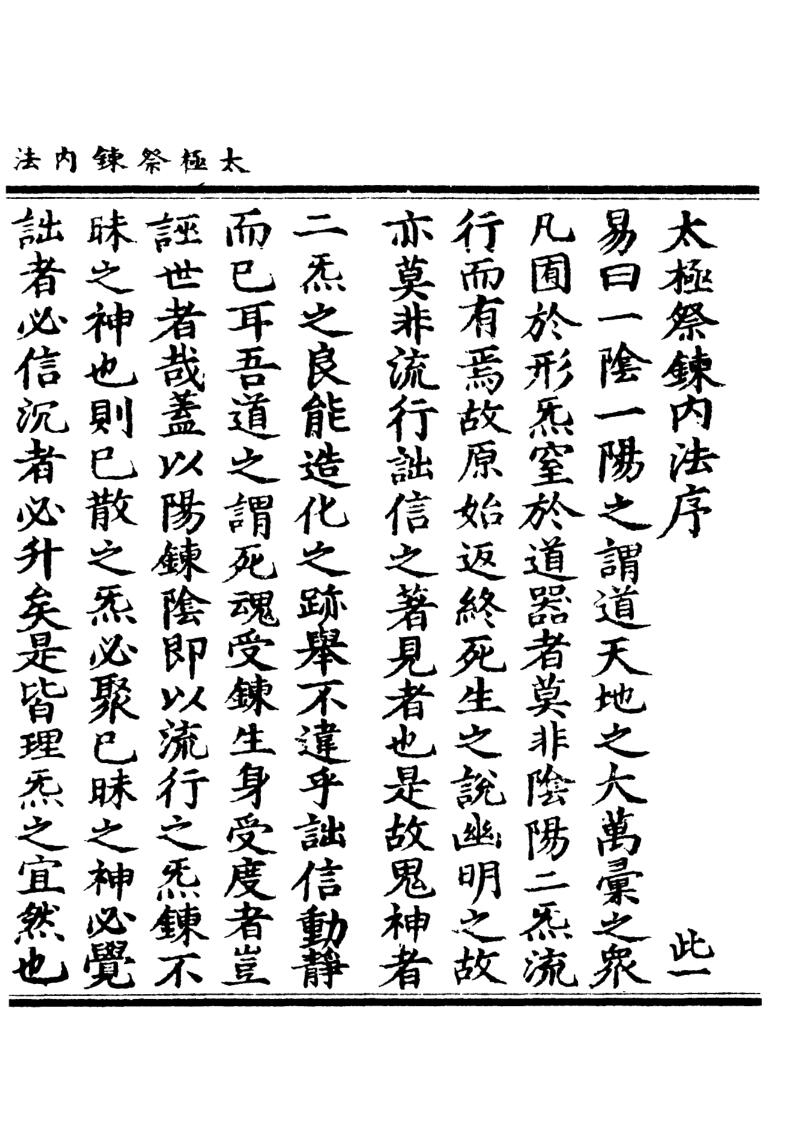 太極祭鍊內法
太極祭鍊內法序　此一
易曰一陰一陽之謂道天地之大萬彙之衆
凡囿於形炁窒於道器者莫非陰陽二炁流
行而有焉故原始返終死生之說幽明之故
亦莫非流行詘信之著見者也是故鬼神者
二炁之良能造化之跡舉不違乎詘信動靜
而已耳吾道之謂死魂受鍊生身受度者豈
誣世者哉蓋以陽鍊陰即以流行之炁鍊不
昧之神也則已散之炁必聚已昧之神必覺
詘者必信沉者必升矣是皆理炁之宜然也